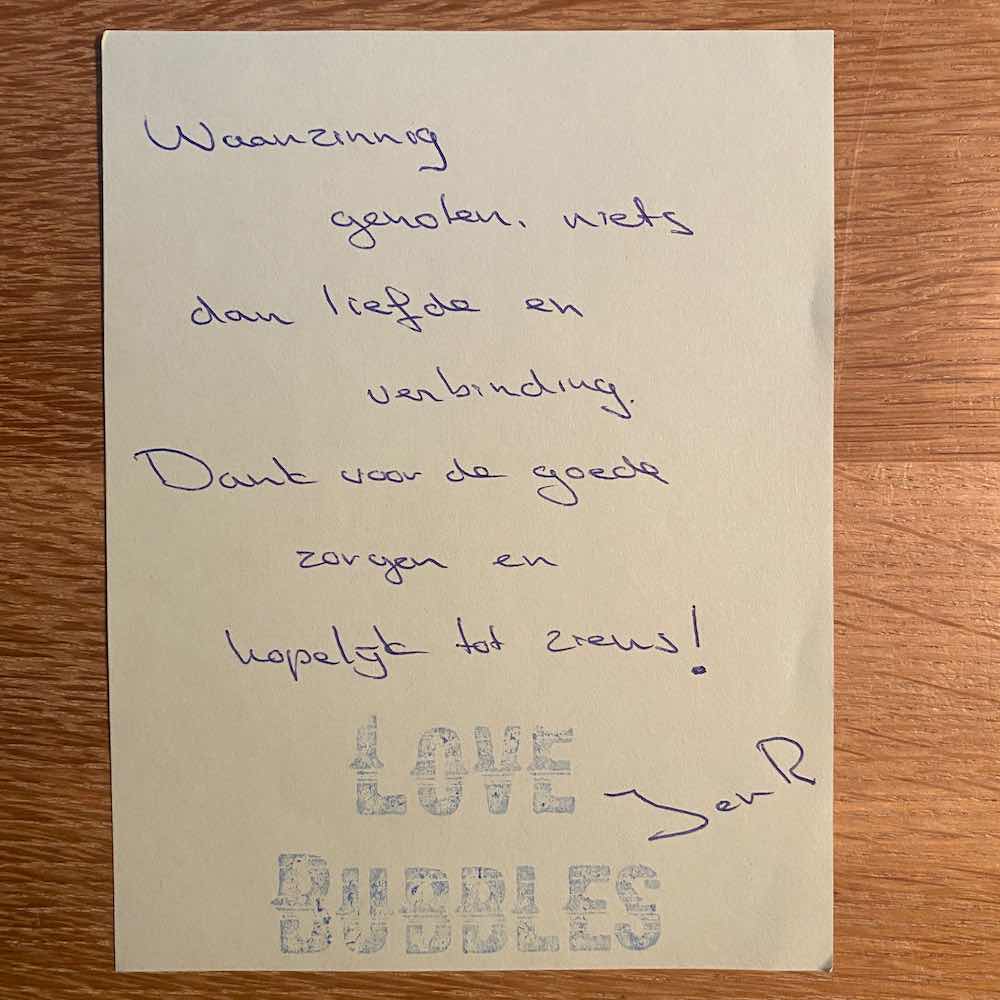 Waanzinnig
genoten. niets
dan liefde en
verbinding.
Dank voor de goede
zorgen en
hopelijk tot ziens!
Jen R
LOVE
BUBBLES